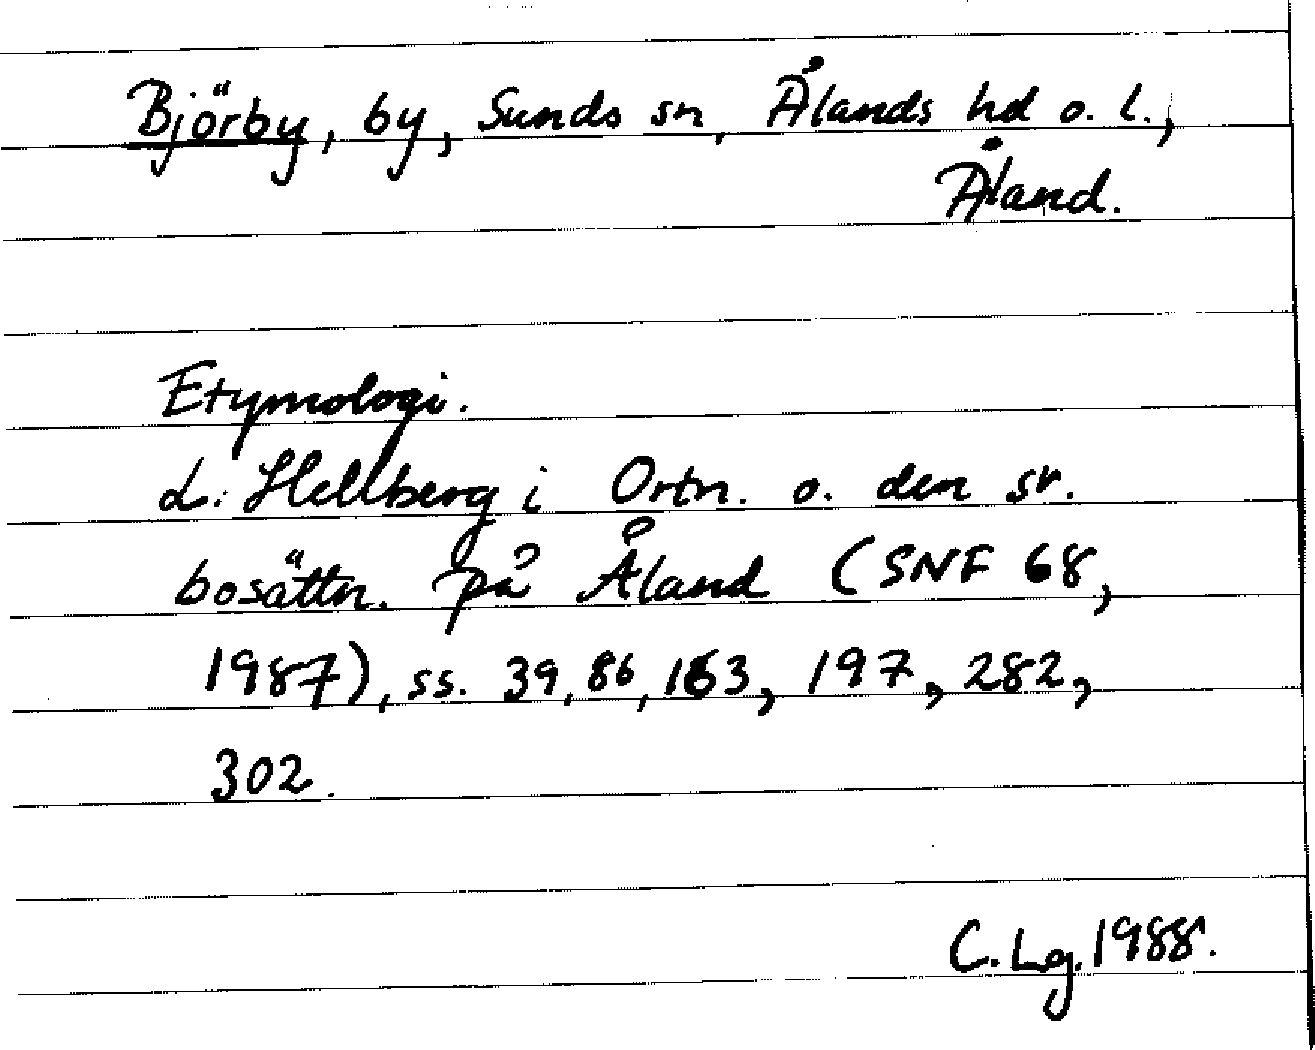 Björby, by, Sunds sn, Ålands hd o. l.,
Åland.
Etymologi.
L. Hellberg i Ortn. o. den sv.
bosättn. på Åland (SNF 68,
1987), ss. 39, 86, 163, 197, 282,
302.
C. Lg. 1988.